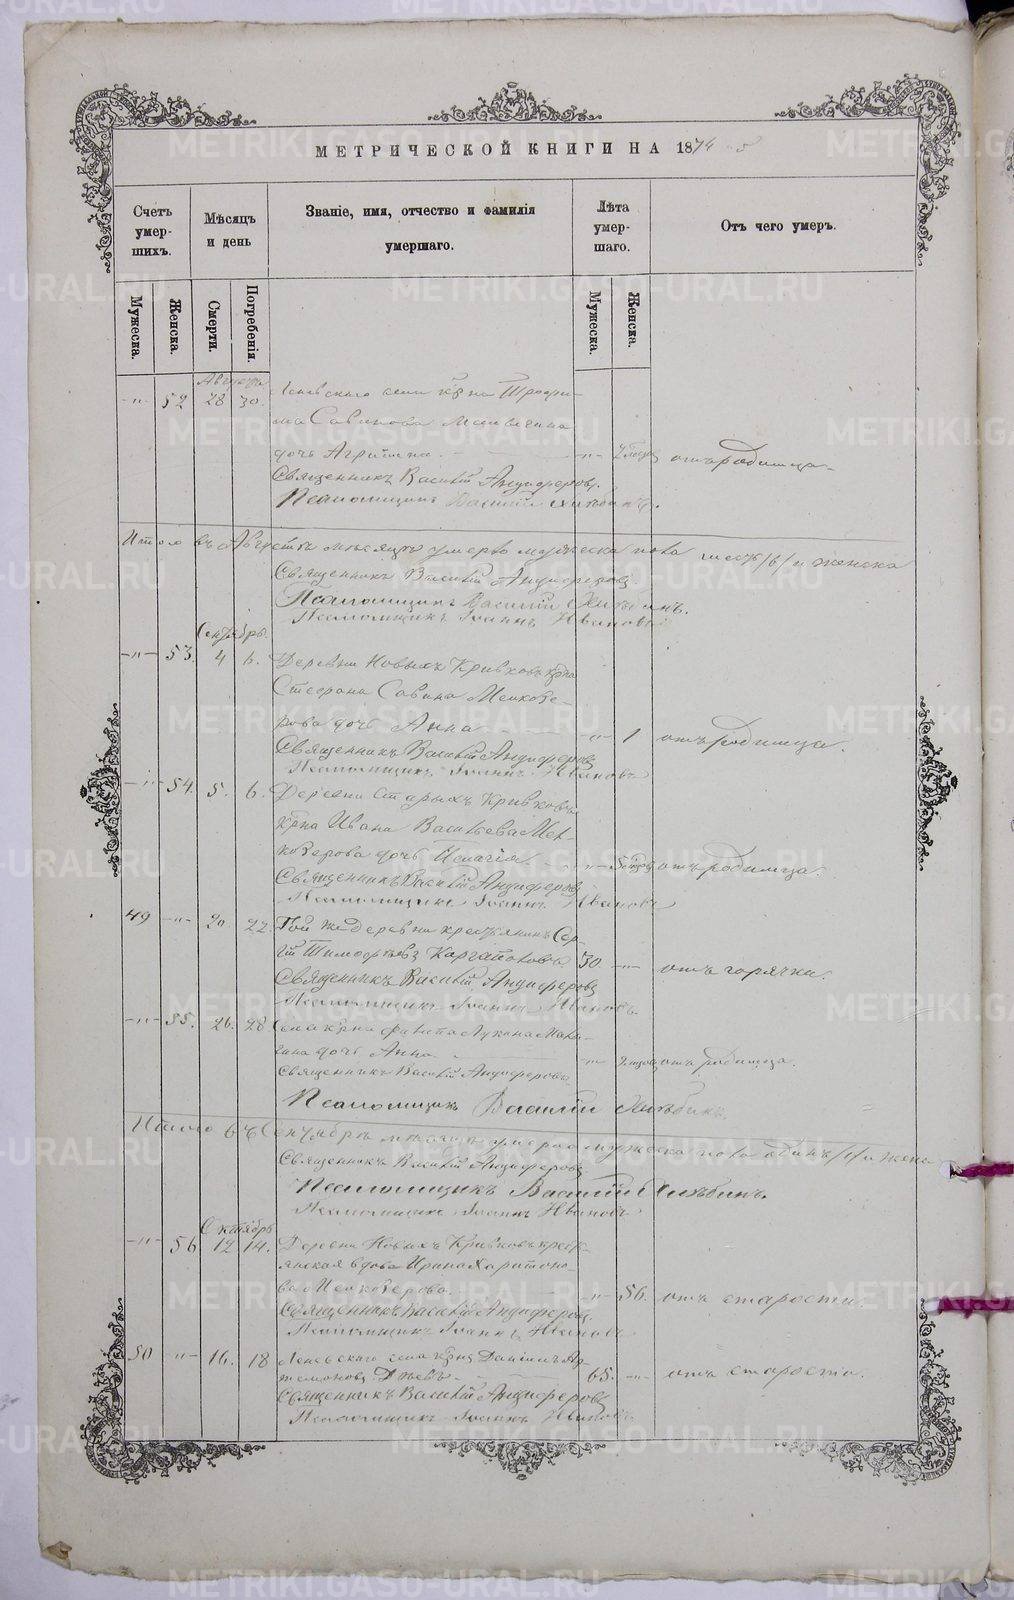 МЕТРИЧЕСКОЙ КНИГИ НА 1874
Счетъ умер-шихъ.
Мѣсяцъ и день
Званіе, имя, отчество и фамилія умершаго.
Лѣта умер-шаго.
Отъ чего умеръ.
Мужеска.
Женска.
Смерти.
Погребенія.
Мужеска.
Женска.
Августъ
-"- 52 28 30. села Трофи-
ма Савинова
дочь -"- отъ родимца.
Священникъ Василій Андиферовъ.
Псаломщикъ Василій Хлѣбинъ.
Итого въ Августѣ мѣсяцѣ умерло мужеска пола шесть /6/ и женска
Священникъ Василій Андиферовъ.
Псаломщикъ Василій Хлѣбинъ.
Псаломщикъ Іоаннъ Ивановъ
Сентябрь.
-"- 53. 4 6. Деревни Новыхъ Кривковъ крна
Стефана Савина Мелкозе-
рова дочь Анна -"- 1 отъ родимца.
Священникъ Василій Андиферовъ
Псаломщикъ Іоаннъ Ивановъ
-"- 54. 5. 6. Деревни Старыхъ Кривковъ
крна Ивана Васильева Мел-
козерова дочь -"- отъ родимца.
Священникъ Василій Андиферовъ
Псаломщикъ Іоаннъ Ивановъ
49 -"- 20. 22. Той же деревни крестьянинъ Сер-
гій Тимофеевъ 30 -"- отъ горячки.
Священникъ Василій Андиферовъ
Псаломщикъ Іоаннъ Ивановъ
-"- 55. 26. 28 Села крна
дочь Анна -"- отъ родимца.
Священникъ Василій Андиферовъ
Псаломщикъ Василій Хлѣбинъ.
Итого въ Сентябрѣ мѣсяцѣ умерло мужеска пола одинъ /1/ и женс
Священникъ Василій Андиферовъ
Псаломщикъ Василій Хлѣбинъ.
Псаломщикъ Іоаннъ Ивановъ
Октябрь
-"- 56 12 14. Деревни Новыхъ Кривковъ крест-
янская вдова Ирина Харитоно-
ва Мелкозерова. -"- 56. отъ старости.
Священникъ Василій Андиферовъ.
Псаломщикъ Іоаннъ Ивановъ
50 -"- 16. 18 села крнъ Даніилъ Ар-
темоновъ 65. -"- отъ старости.
Священникъ Василій Андиферовъ
Псаломщикъ Іоаннъ Ивановъ
METRIKI.GASO-URAL.RU